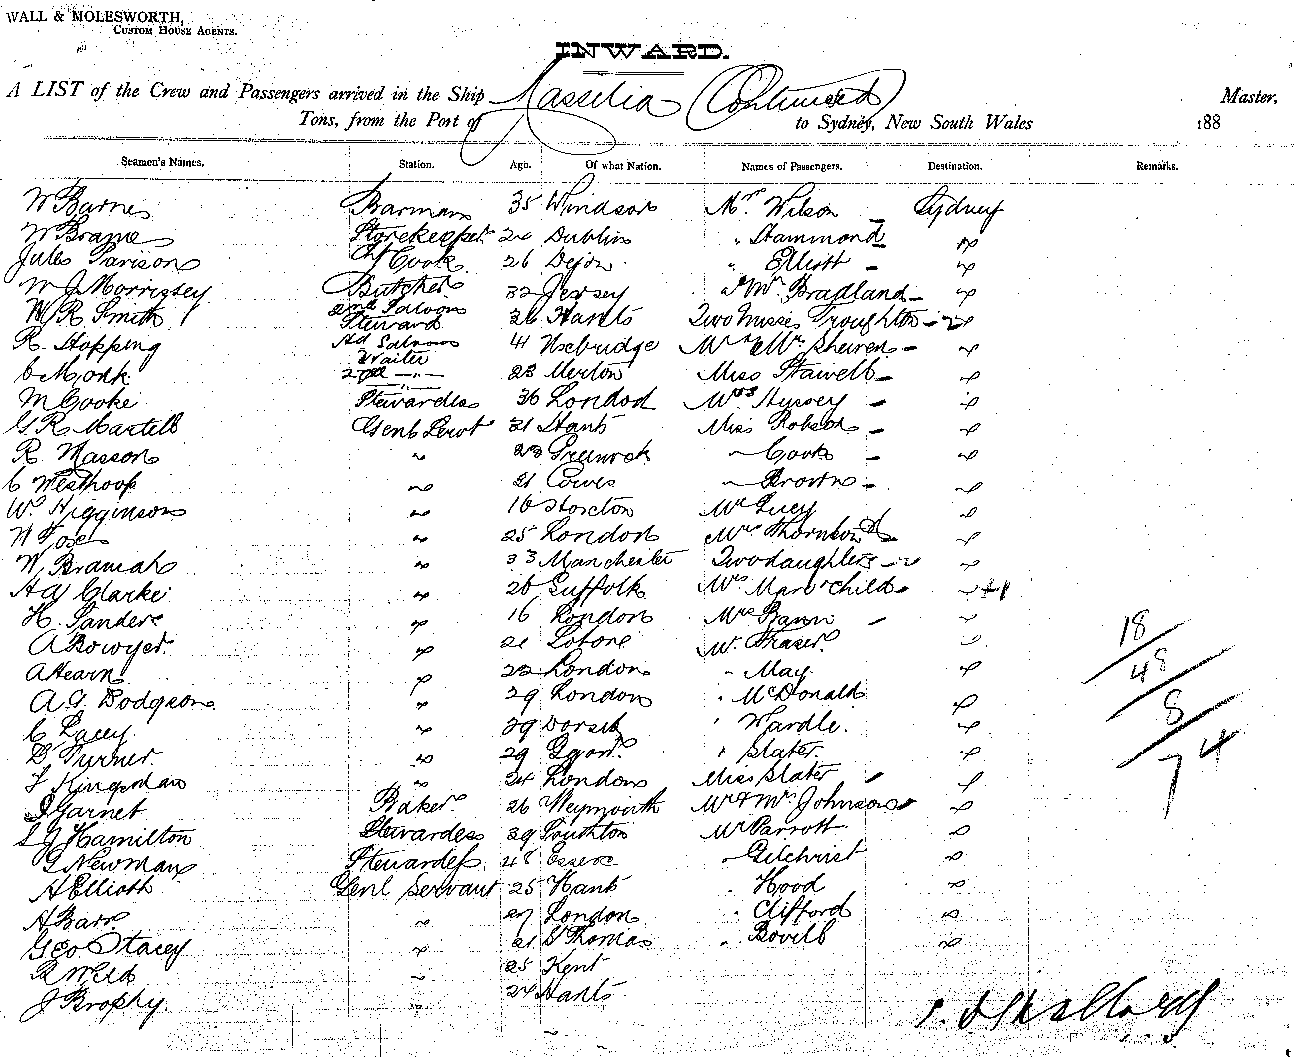 WALL & MOLESWORTH,
CUSTOM HOUSE AGENTS.
INWARD.
A LIST of the Crew and Passengers arrived in the Ship Massilia (Continued) Master,
Tons, from the Port of to Sydney, New South Wales 188
Seamen's Names. Station. Age. Of what Nation. Names of Passengers. Destination. Remarks.
W Barnes Barman 35 Windsor Mr Wilson Sydney
W Brame Storekeeper 24 Dublin " Hammond "
Jules Parison Cook 26 Dejon " Elliott "
W J Morrissey Butcher 32 Jersey Bradland "
W R Smith 2nd Saloon Steward 26 Hants Two Misses Troughton - 2 "
R. Hopping Saloon Waiter 41 Uxbridge "
C Monk 2nd " 23 Merton Miss Stawell "
M Cooke Stewardess 36 London Mrs Hussey "
G R Martell Genl Servt 31 Hants Miss Robson "
R. Masson " 23 Greenock " Cook "
C Westhoop " 21 Cowes " Brown "
W. Higginson " 16 Stockton Mr Lucy "
W Fox " 25 London "
W. Bramah " 33 Manchester Two daughters - 2 "
H G Clarke " 26 Suffolk child +1
H. Sanders " 16 London Mrs Bann "
A Bowyer " 21 Mr Fraser "
A Hearn " 22 London " May "
A. G. Dodgson " 29 London " McDonald "
C Lacey " 39 Dorset " Wardle. "
D Turner. " 29 " Slater "
F Kingman " 24 London Miss Slater "
J Garnet Baker 26 Weymouth Mr & Mrs Johnson "
S J Hamilton Stewardess 39 Southton Mr Parrott "
G Newman Stewardess 48 Essex " Gilchrist "
A Elliott Genl Servant 25 Hants " Hood "
A Barr " 27 London " Clifford "
Geo Stacey " 21 St Thomas " Bovill "
R Weld " 25 Kent
J Brophy. " 24 Hants
18
48
8
74